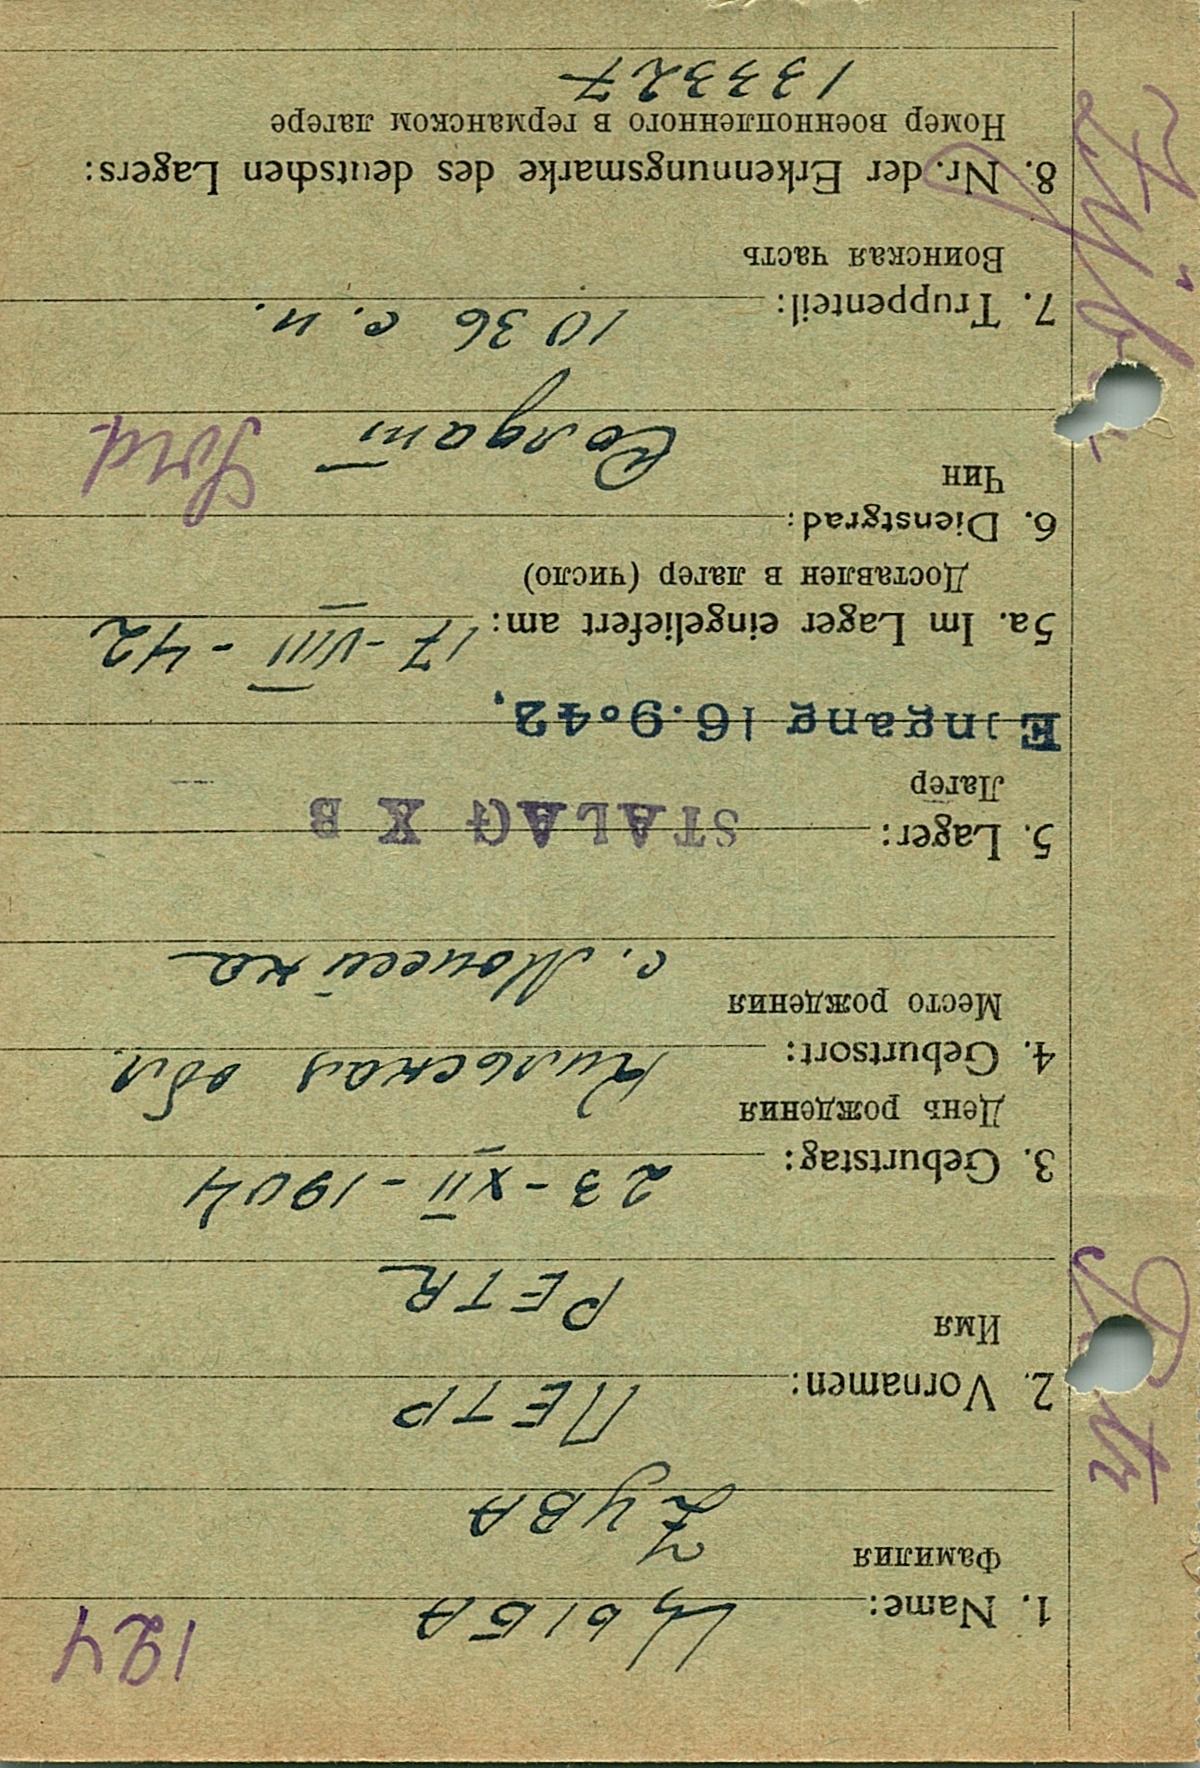 124
1. Name: ЦЫБА
Фамилия
ZYBA
2. Vornamen: ПЕТР
Имя
PETR
3. Geburtstag: 23-XII-1904
День рождения
4. Geburtsort: обл.
Место рождения
с.
5. Lager: STALAG X B
Лагер
Eingang 16.9.42.
5a. Im Lager eingeliefert am: 17-VIII-42
Доставлен в лагер (число)
6. Dienstgrad:
Чин
Солдат Sold.
7. Truppenteil: 1036 с.п.
Воинская часть
8. Nr. der Erkennungsmarke des deutschen Lagers:
Номер военнопленного в германском лагере
133327